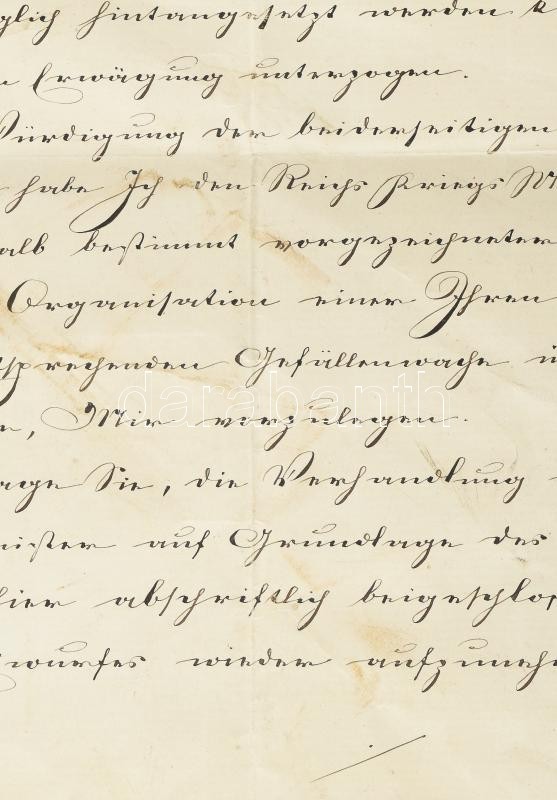 glich hintangesetzt werden
Erwägung unterzogen.
Würdigung der beiderseitigen
habe Ich den Reichs Kriegs M
alb bestimmt vorgezeichneter
Organisation einer Ihren
tsprechenden Gefällenwache ü
e, Mir vorzulegen.
age Sie, die Verhandlung
nister auf Grundlage des
hier abschriftlich beigeschlos
twurfes wieder aufzuneh
darabanth